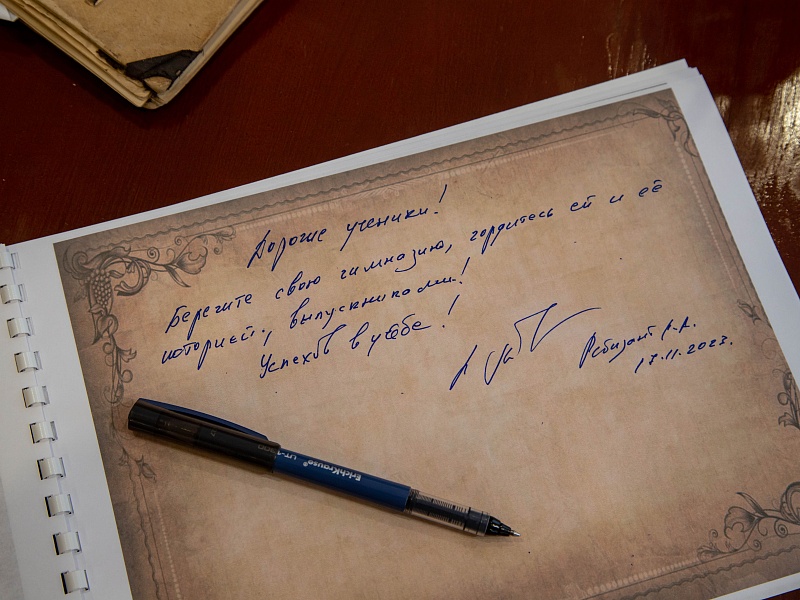 Дорогие ученики!
Берегите свою гимназию, гордитесь ей и её
историей, выпускниками!
Успехов в учебе!
Ребизант А.А.
17.11.2023.
ErichKrause® UT-1300